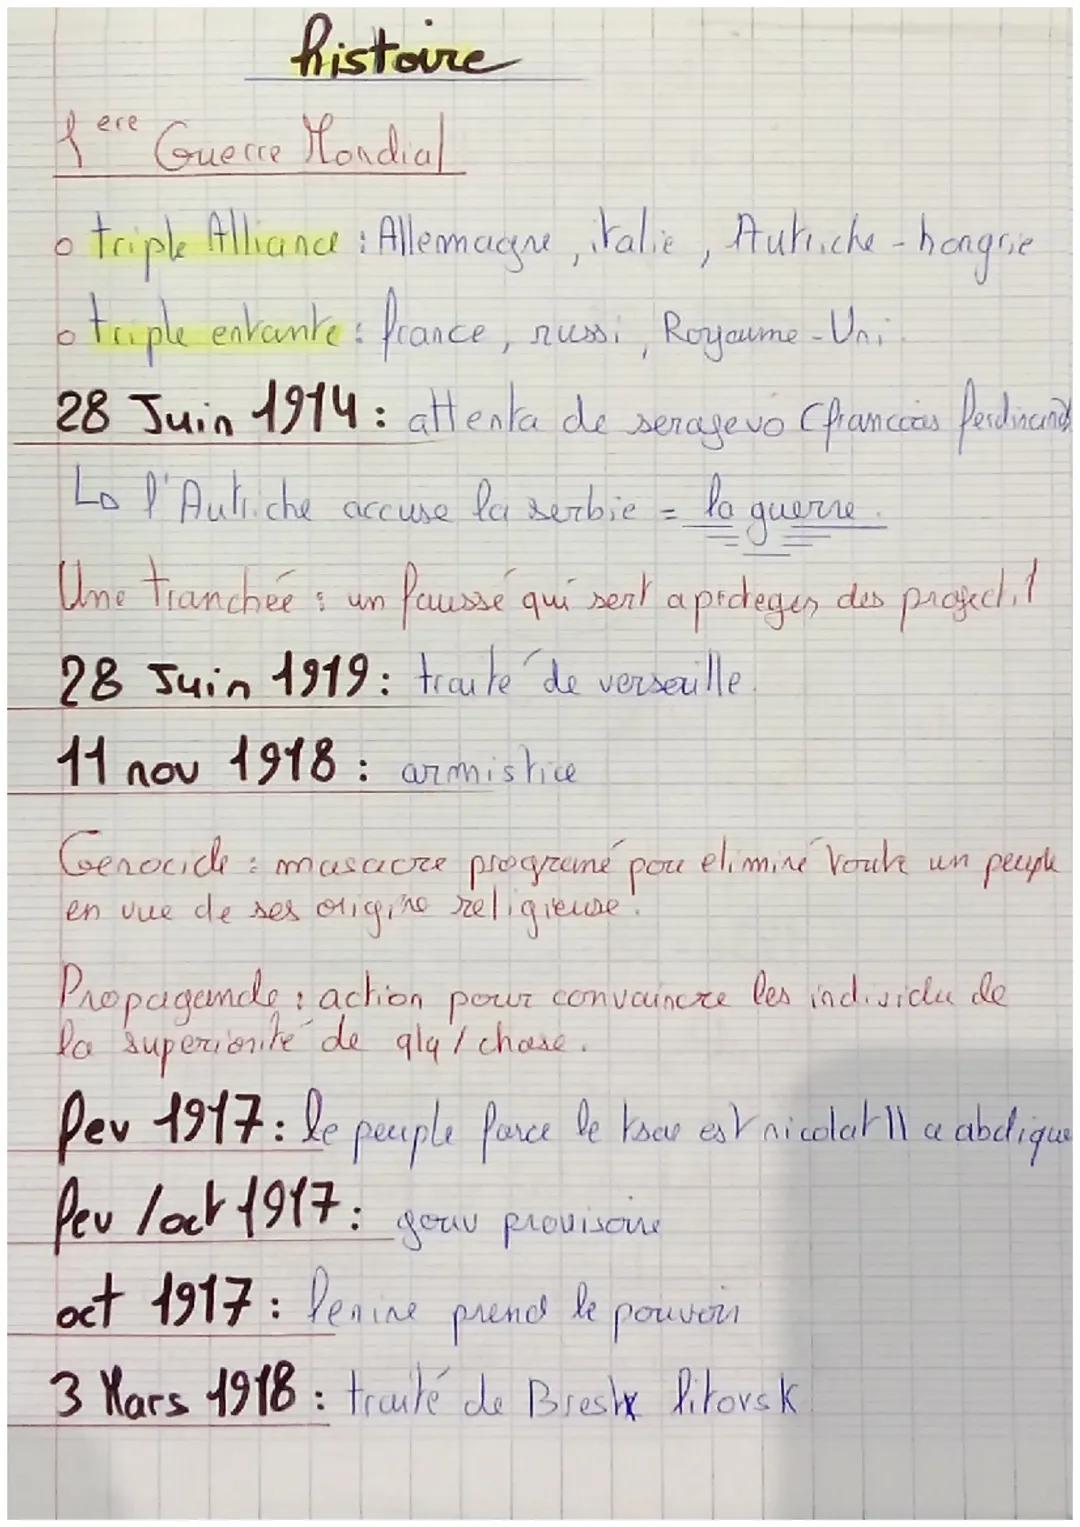 histoire
1ere Guerre Mondial
o triple Alliance : Allemagne, italie, Autriche-hongrie
o triple entante : france, russi, Royaume-Uni.
28 Juin 1914 : attenta de seragevo (francois ferdinand
↳ l'Autriche accuse la serbie = la guerre.
Une tranchée : un faussé qui sert a proteger des projectil
28 Juin 1919 : traité de versaille.
11 nov 1918 : armistice
Genocide : masacre programé pour elimine toute un peuple
en vue de ses origine religieuse.
Propagande : action pour convaincre les individu de
la superiorité de qlq/chose.
fev 1917 : le peuple force le tsar est nicolat II a abdique
fev/oct 1917 : gouv provisoire
oct 1917 : lenine prend le pouvoir
3 Mars 1918 : traité de Brest litovsk